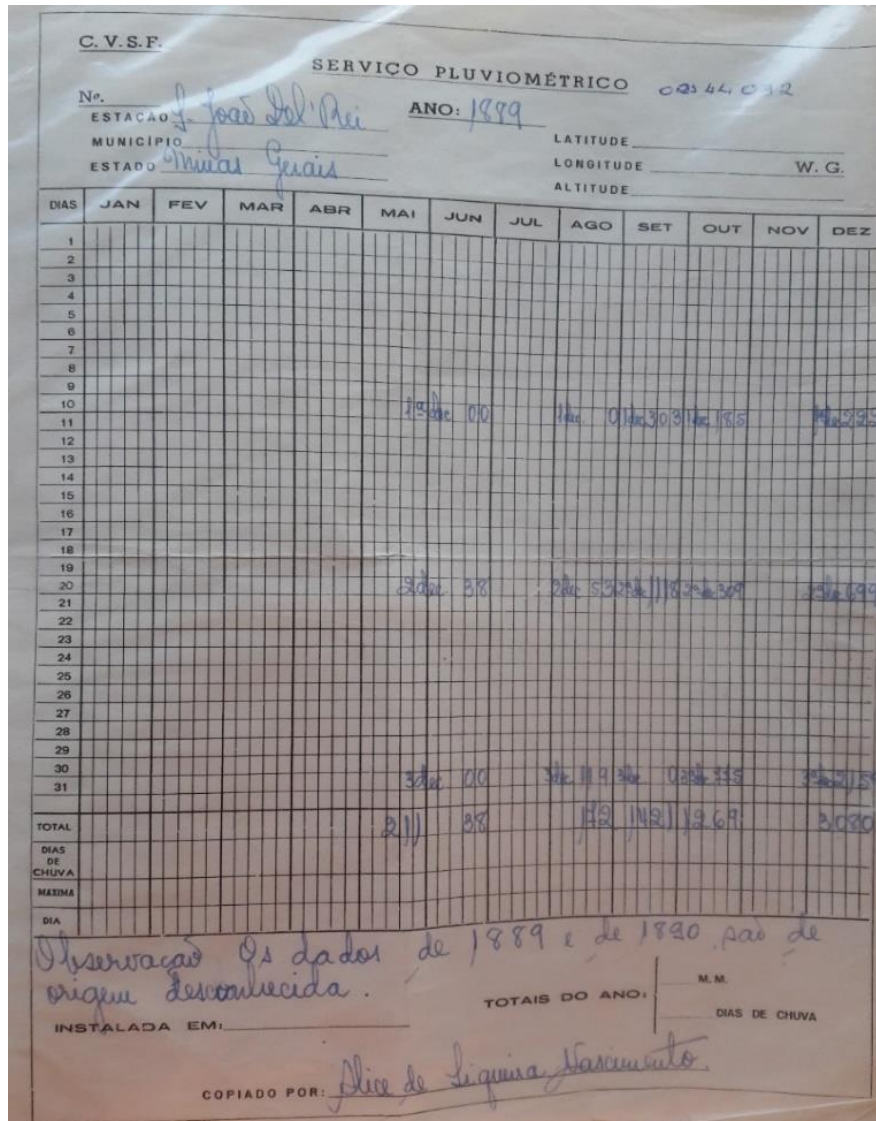 C. V. S. F.
SERVIÇO PLUVIOMÉTRICO
Nº.
ESTAÇÃO S. João Del' Rei ANO: 1889
MUNICÍPIO LATITUDE
ESTADO Minas Gerais LONGITUDE W. G.
ALTITUDE
DIAS JAN FEV MAR ABR MAI JUN JUL AGO SET OUT NOV DEZ
1
2
3
4
5
6
7
8
9
10 1ª dec 00 1 dec 0 1 dec 303 1 dec 185
11
12
13
14
15
16
17
18
19
20 2 dec 38 2 dec 53 1118 309 699
21
22
23
24
25
26
27
28
29
30 3 dec 00 3 dec 119 3 dec 0 775
31
TOTAL 211 38 172 1421 1269 3080
DIAS DE CHUVA
MAXIMA
DIA
Observação Os dados de 1889 e de 1890 são de
origem desconhecida.
TOTAIS DO ANO: M. M.
DIAS DE CHUVA
INSTALADA EM:
COPIADO POR: Alice de Siqueira Nascimento.